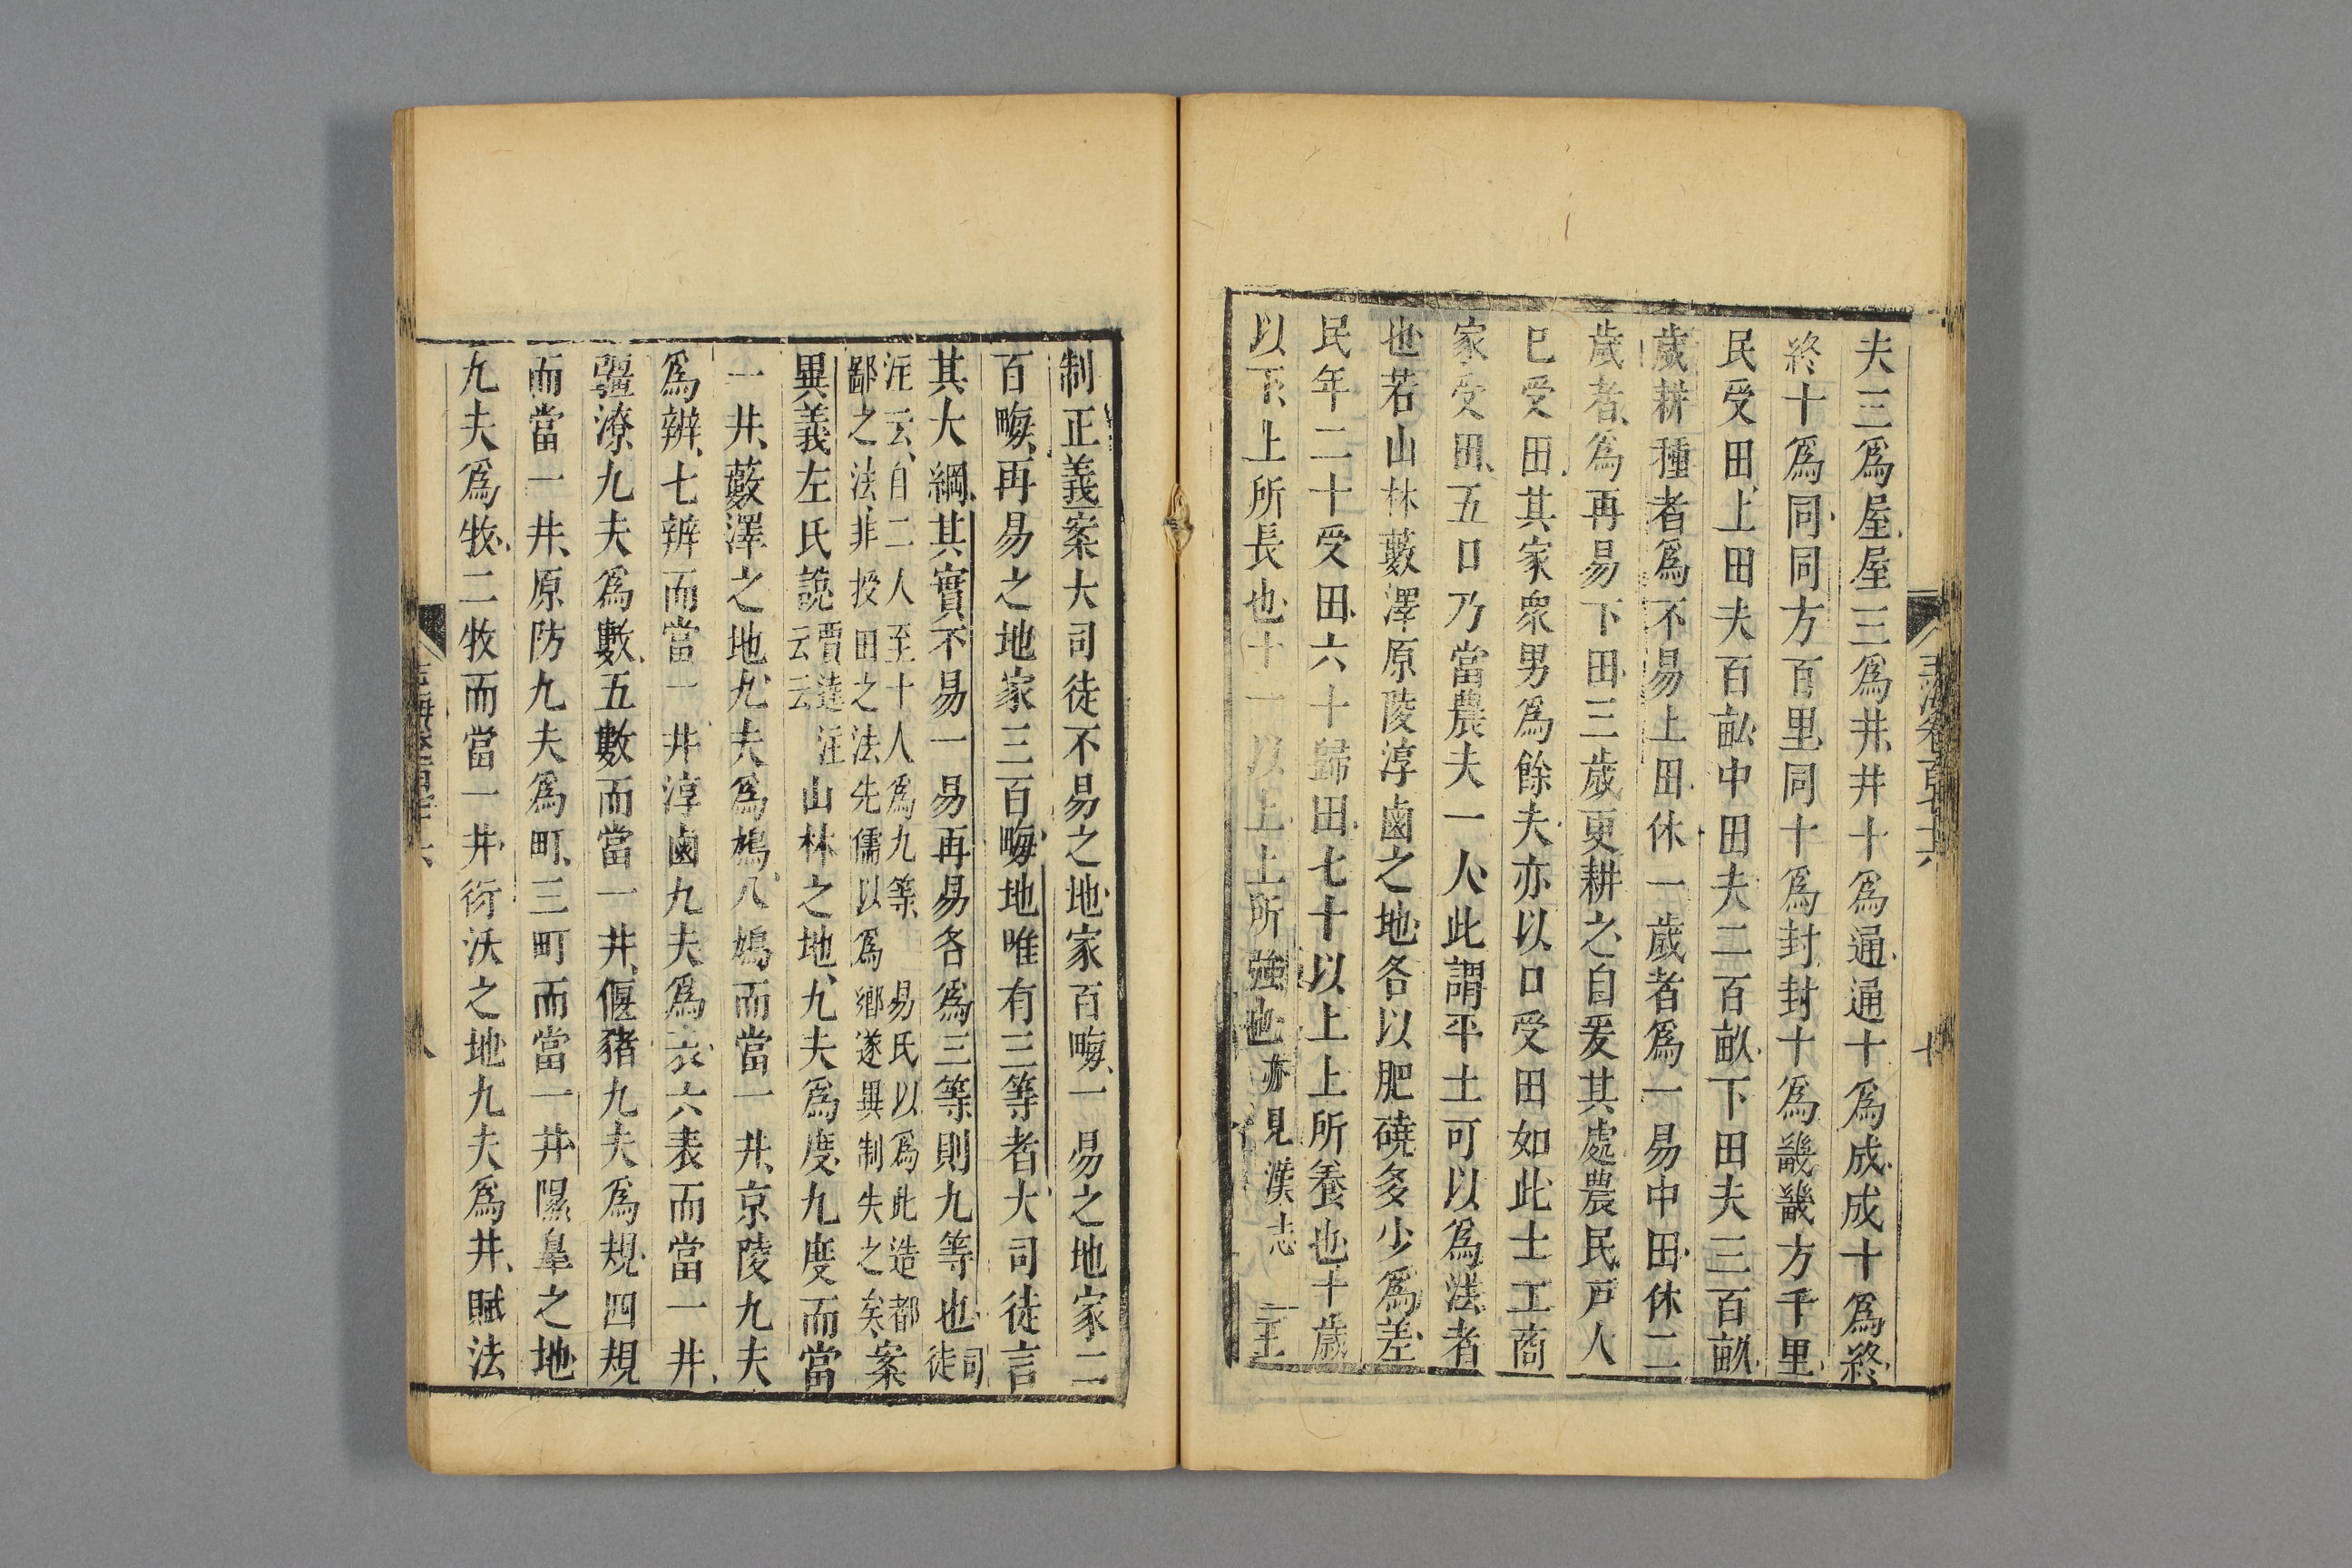 夫三爲屋屋三爲井井十爲通通十爲成成十爲終
終十爲同同方百里同十爲封封十爲畿畿方千里
民受田上田夫百畝中田夫二百畝下田夫三百畝
歲耕種者爲不易上田休一歲者爲一易中田休二
歲者爲再易下田三歲更耕之自爰其處農民戸人
已受田其家衆男爲餘夫亦以口受田如此士工商
家受田五口乃當農夫一人此謂平土可以爲法者
也若山林藪澤原陵淳鹵之地各以肥磽多少爲差
民年二十受田六十歸田七十以上上所養也十歲
以下上所長也十一以上上所強也亦見漢志
制正義案大司徒不易之地家百畮一易之地家二
百畮再易之地家三百畮地唯有三等者大司徒言
其大綱其實不易一易再易各爲三等則九等也司徒
注云自二人至十人爲九等 易氏以爲此造都
鄙之法非授田之法先儒以爲鄉遂異制失之矣案
異義左氏說賈逵注云云山林之地九夫爲度九度而當
一井藪澤之地九夫爲鳩八鳩而當一井京陵九夫
爲辨七辨而當一井淳鹵九夫爲表六表而當一井
疆潦九夫爲數五數而當一井偃豬九夫爲規四規
而當一井原防九夫爲町三町而當一井隰臯之地
九夫爲牧二牧而當一井衍沃之地九夫爲井賦法